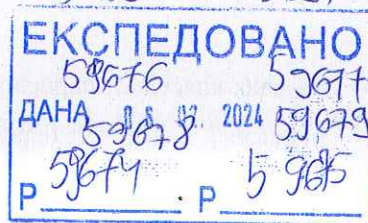 ЕКСПЕДОВАНО
59676 59677
ДАНА 2024
59678 59679
59674 59675
Р Р